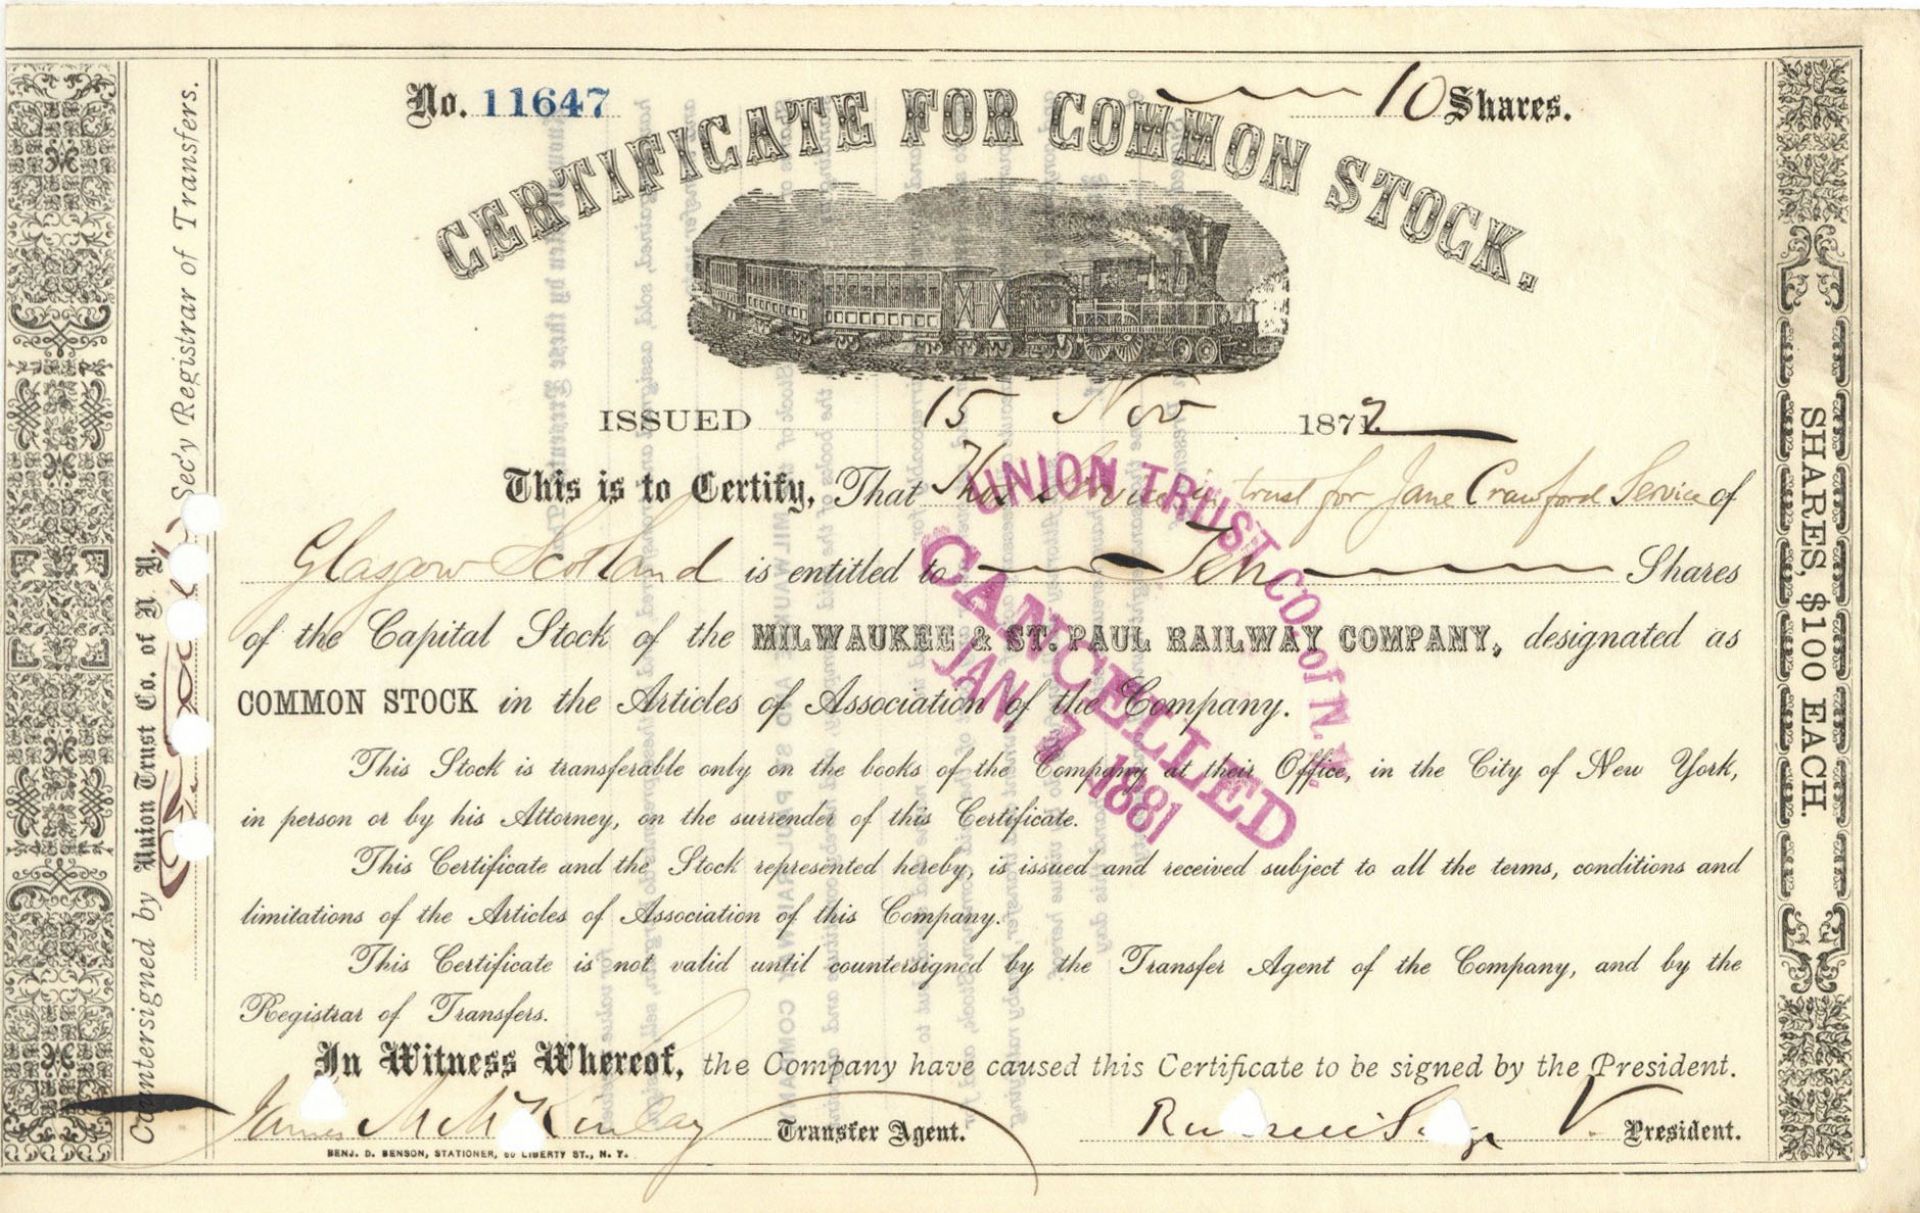 No. 11647
10 Shares.
CERTIFICATE FOR COMMON STOCK.
ISSUED 15 Nov 1872
This is to Certify, That Thos Service in trust for Jane Crawford Service of
Glasgow Scotland is entitled to Ten Shares
of the Capital Stock of the MILWAUKEE & ST. PAUL RAILWAY COMPANY, designated as
COMMON STOCK in the Articles of Association of the Company.
This Stock is transferable only on the books of the Company at their Office, in the City of New York,
in person or by his Attorney, on the surrender of this Certificate.
This Certificate and the Stock represented hereby, is issued and received subject to all the terms, conditions and
limitations of the Articles of Association of this Company.
This Certificate is not valid until countersigned by the Transfer Agent of the Company, and by the
Registrar of Transfers.
In Witness Whereof, the Company have caused this Certificate to be signed by the President.
James M McKinlay Transfer Agent.
Russell Sage V. President.
BENJ. D. BENSON, STATIONER, 60 LIBERTY ST., N. Y.
Countersigned by Union Trust Co. of N. Y.
Sec'y Registrar of Transfers.
SHARES, $100 EACH.
UNION TRUST CO. of N.Y.
CANCELLED
JAN 7 1881